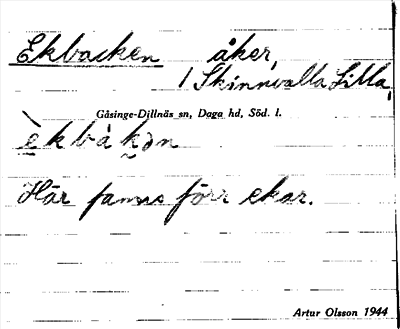 Ekbacken åker,
1 Skinnvalla Lilla,
Gåsinge-Dillnäs sn, Daga hd, Söd. l.
Här fanns förr ekar.
Artur Olsson 1944